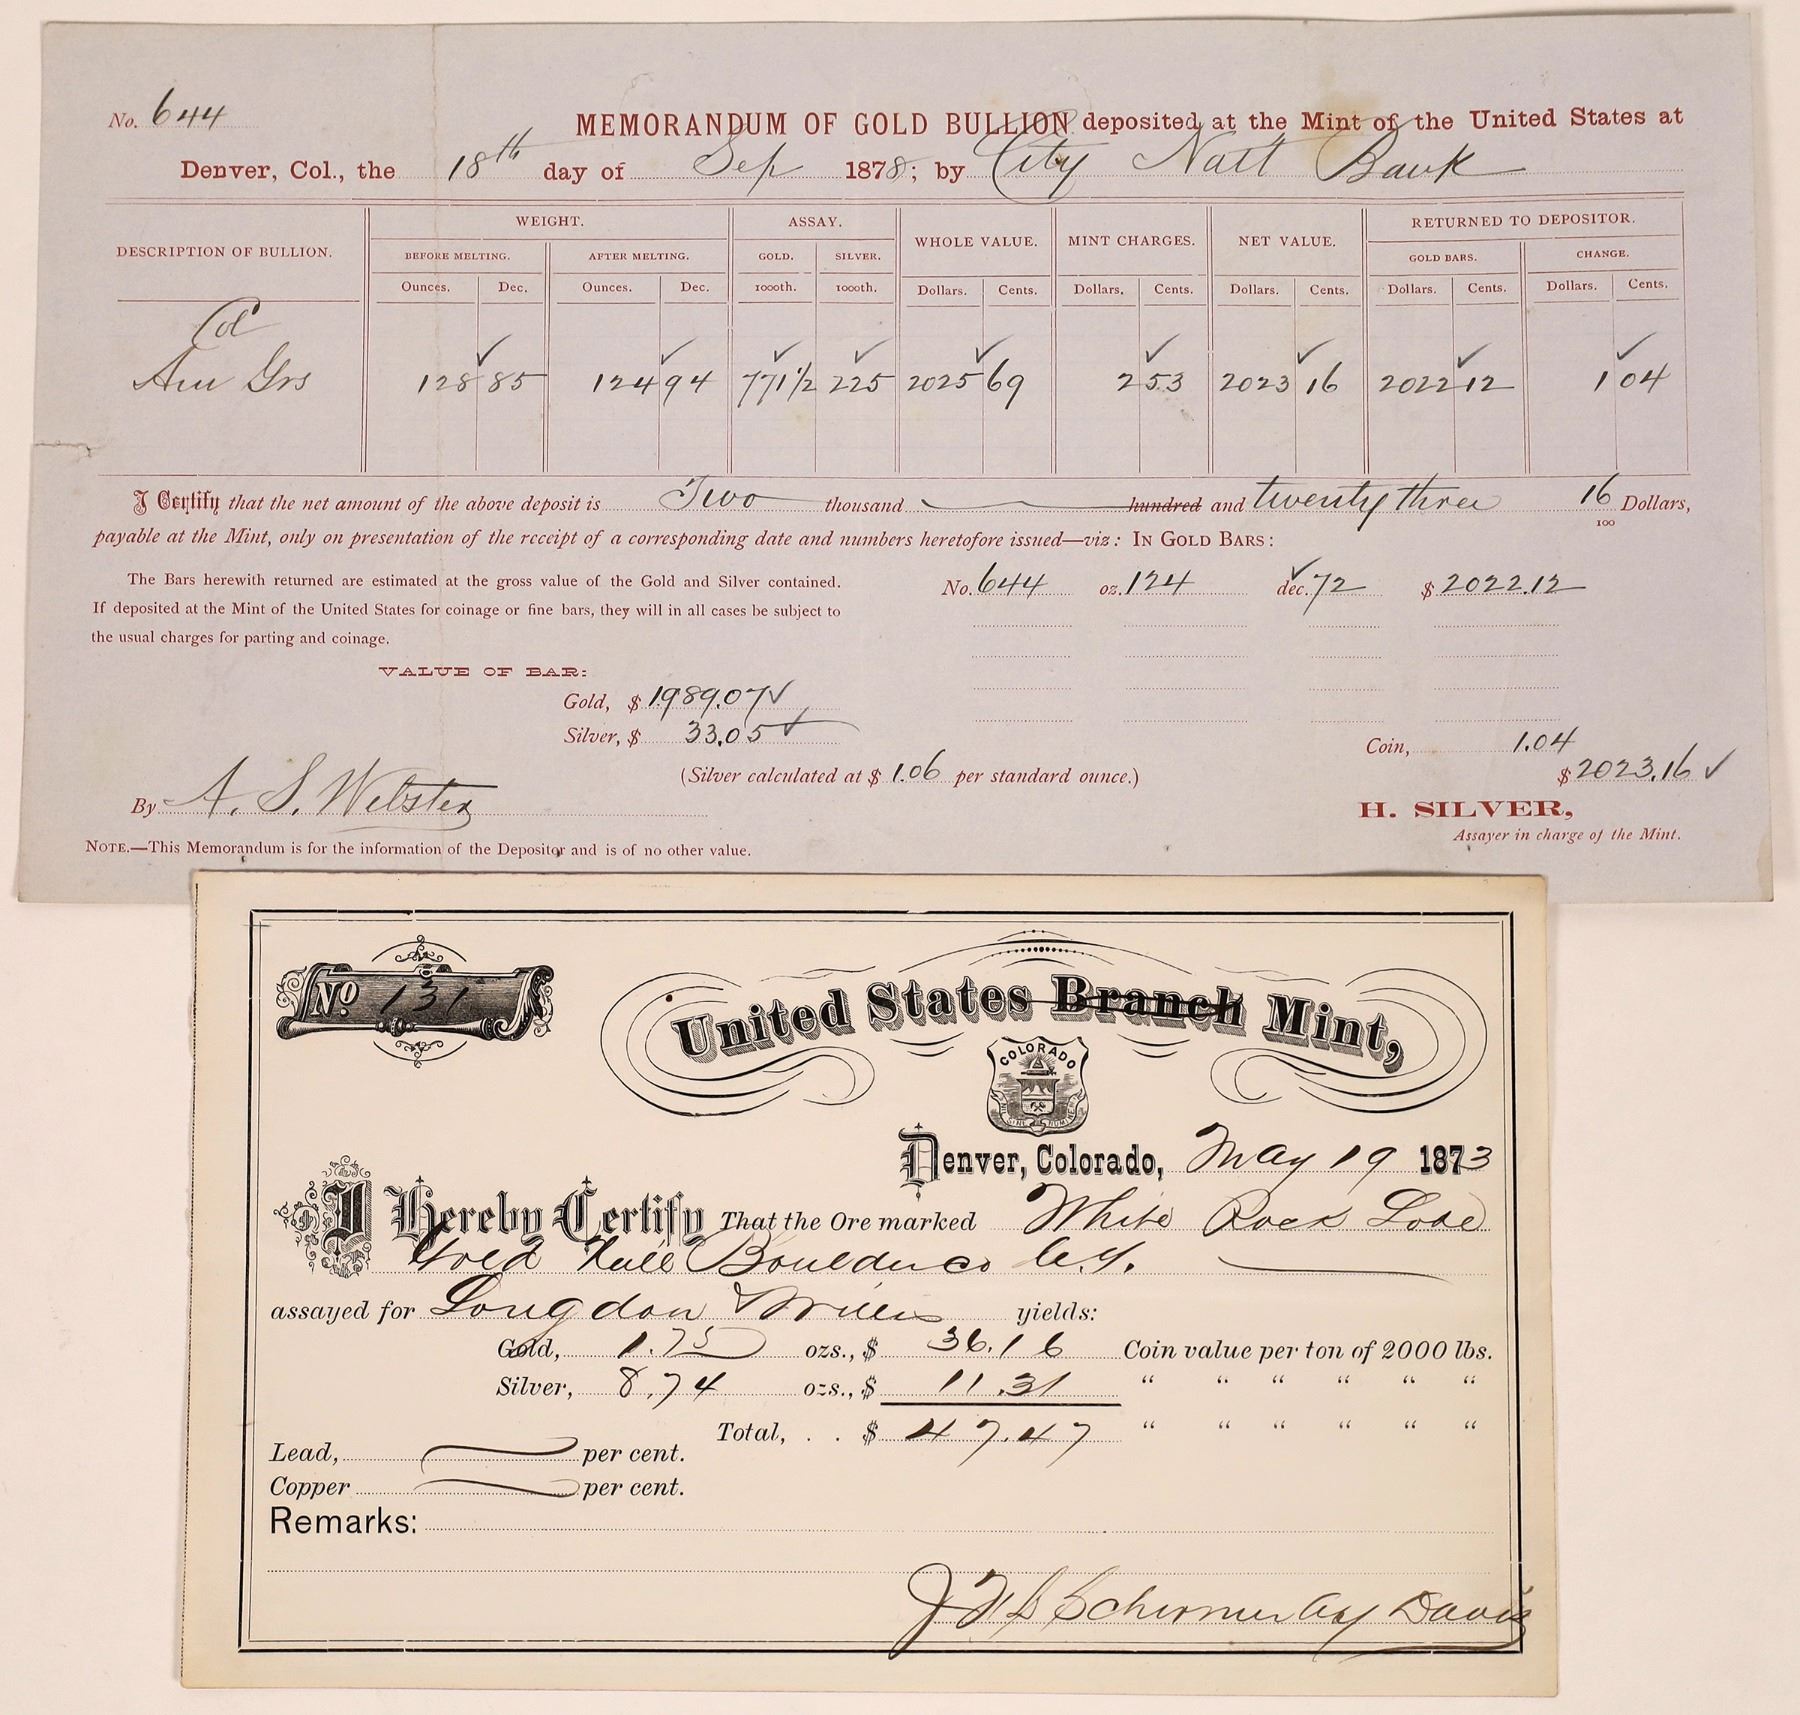 No. 644
MEMORANDUM OF GOLD BULLION deposited at the Mint of the United States at
Denver, Col., the 18th day of Sep 1878; by City Natl Bank
DESCRIPTION OF BULLION. WEIGHT. ASSAY. WHOLE VALUE. MINT CHARGES. NET VALUE. RETURNED TO DEPOSITOR.
BEFORE MELTING. AFTER MELTING. GOLD. SILVER. GOLD BARS. CHANGE.
Ounces. Dec. Ounces. Dec. 1000th. 1000th. Dollars. Cents. Dollars. Cents. Dollars. Cents. Dollars. Cents. Dollars. Cents.
Col
Am Grs 128 85 124 94 771 1/2 225 2025 69 2 53 2023 16 2022 12 1 04
I Certify that the net amount of the above deposit is Two thousand hundred and twenty three 16/100 Dollars,
payable at the Mint, only on presentation of the receipt of a corresponding date and numbers heretofore issued—viz: IN GOLD BARS:
The Bars herewith returned are estimated at the gross value of the Gold and Silver contained.
If deposited at the Mint of the United States for coinage or fine bars, they will in all cases be subject to
the usual charges for parting and coinage.
No. 644 oz. 124 dec. 72 $ 2022.12
VALUE OF BAR:
Gold, $ 1989.07
Silver, $ 33.05
(Silver calculated at $ 1.06 per standard ounce.)
Coin, 1.04
$ 2023.16
By A. S. Webster
H. SILVER,
Assayer in charge of the Mint.
NOTE.—This Memorandum is for the information of the Depositor and is of no other value.
No. 131
United States Branch Mint,
COLORADO
NIL SINE NUMINE
Denver, Colorado, May 19 1873
I Hereby Certify That the Ore marked White Rock Lode
Gold Hill Boulder co C.T.
assayed for Longdon & Willis yields:
Gold, 1.75 ozs., $ 36.16 Coin value per ton of 2000 lbs.
Silver, 8.74 ozs., $ 11.31 " " " " " "
Total, . . $ 47.47 " " " " " "
Lead, per cent.
Copper per cent.
Remarks:
J F L Schirmer Ay Davis